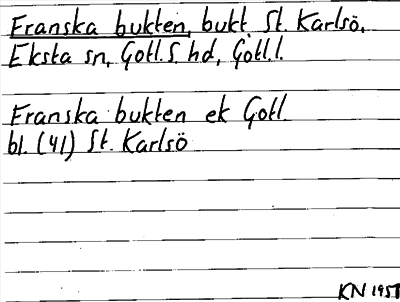 Franska bukten, bukt, St. Karlsö,
Eksta sn, Gotl. S. hd, Gotl. l.
Franska bukten ek Gotl
bl. (41) St. Karlsö
KN